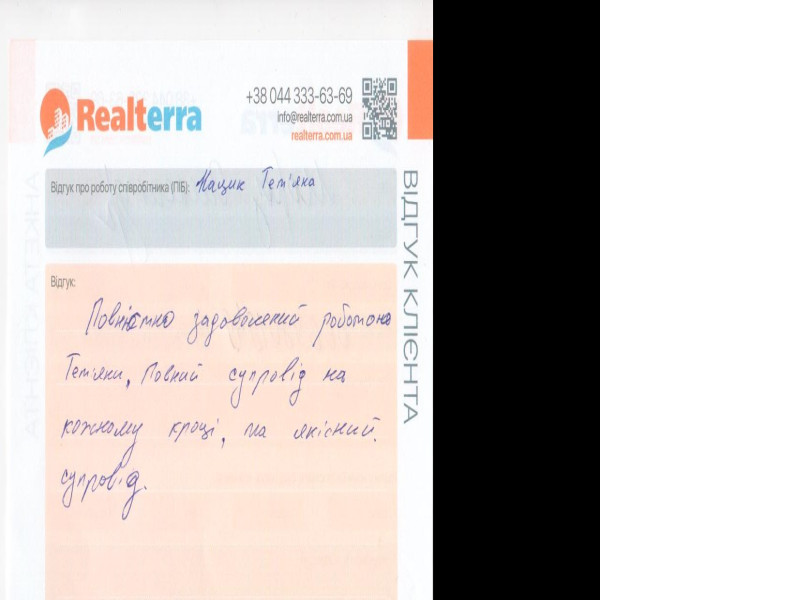 Realterra
+38 044 333-63-69
info@realterra.com.ua
realterra.com.ua
Відгук про роботу співробітника (ПІБ): Нацик Тет'яна
ВІДГУК КЛІЄНТА
Відгук:
Повністю задоволений роботою
Тет'яни, Повний супровід на
кожному кроці, та якісний
супровід.